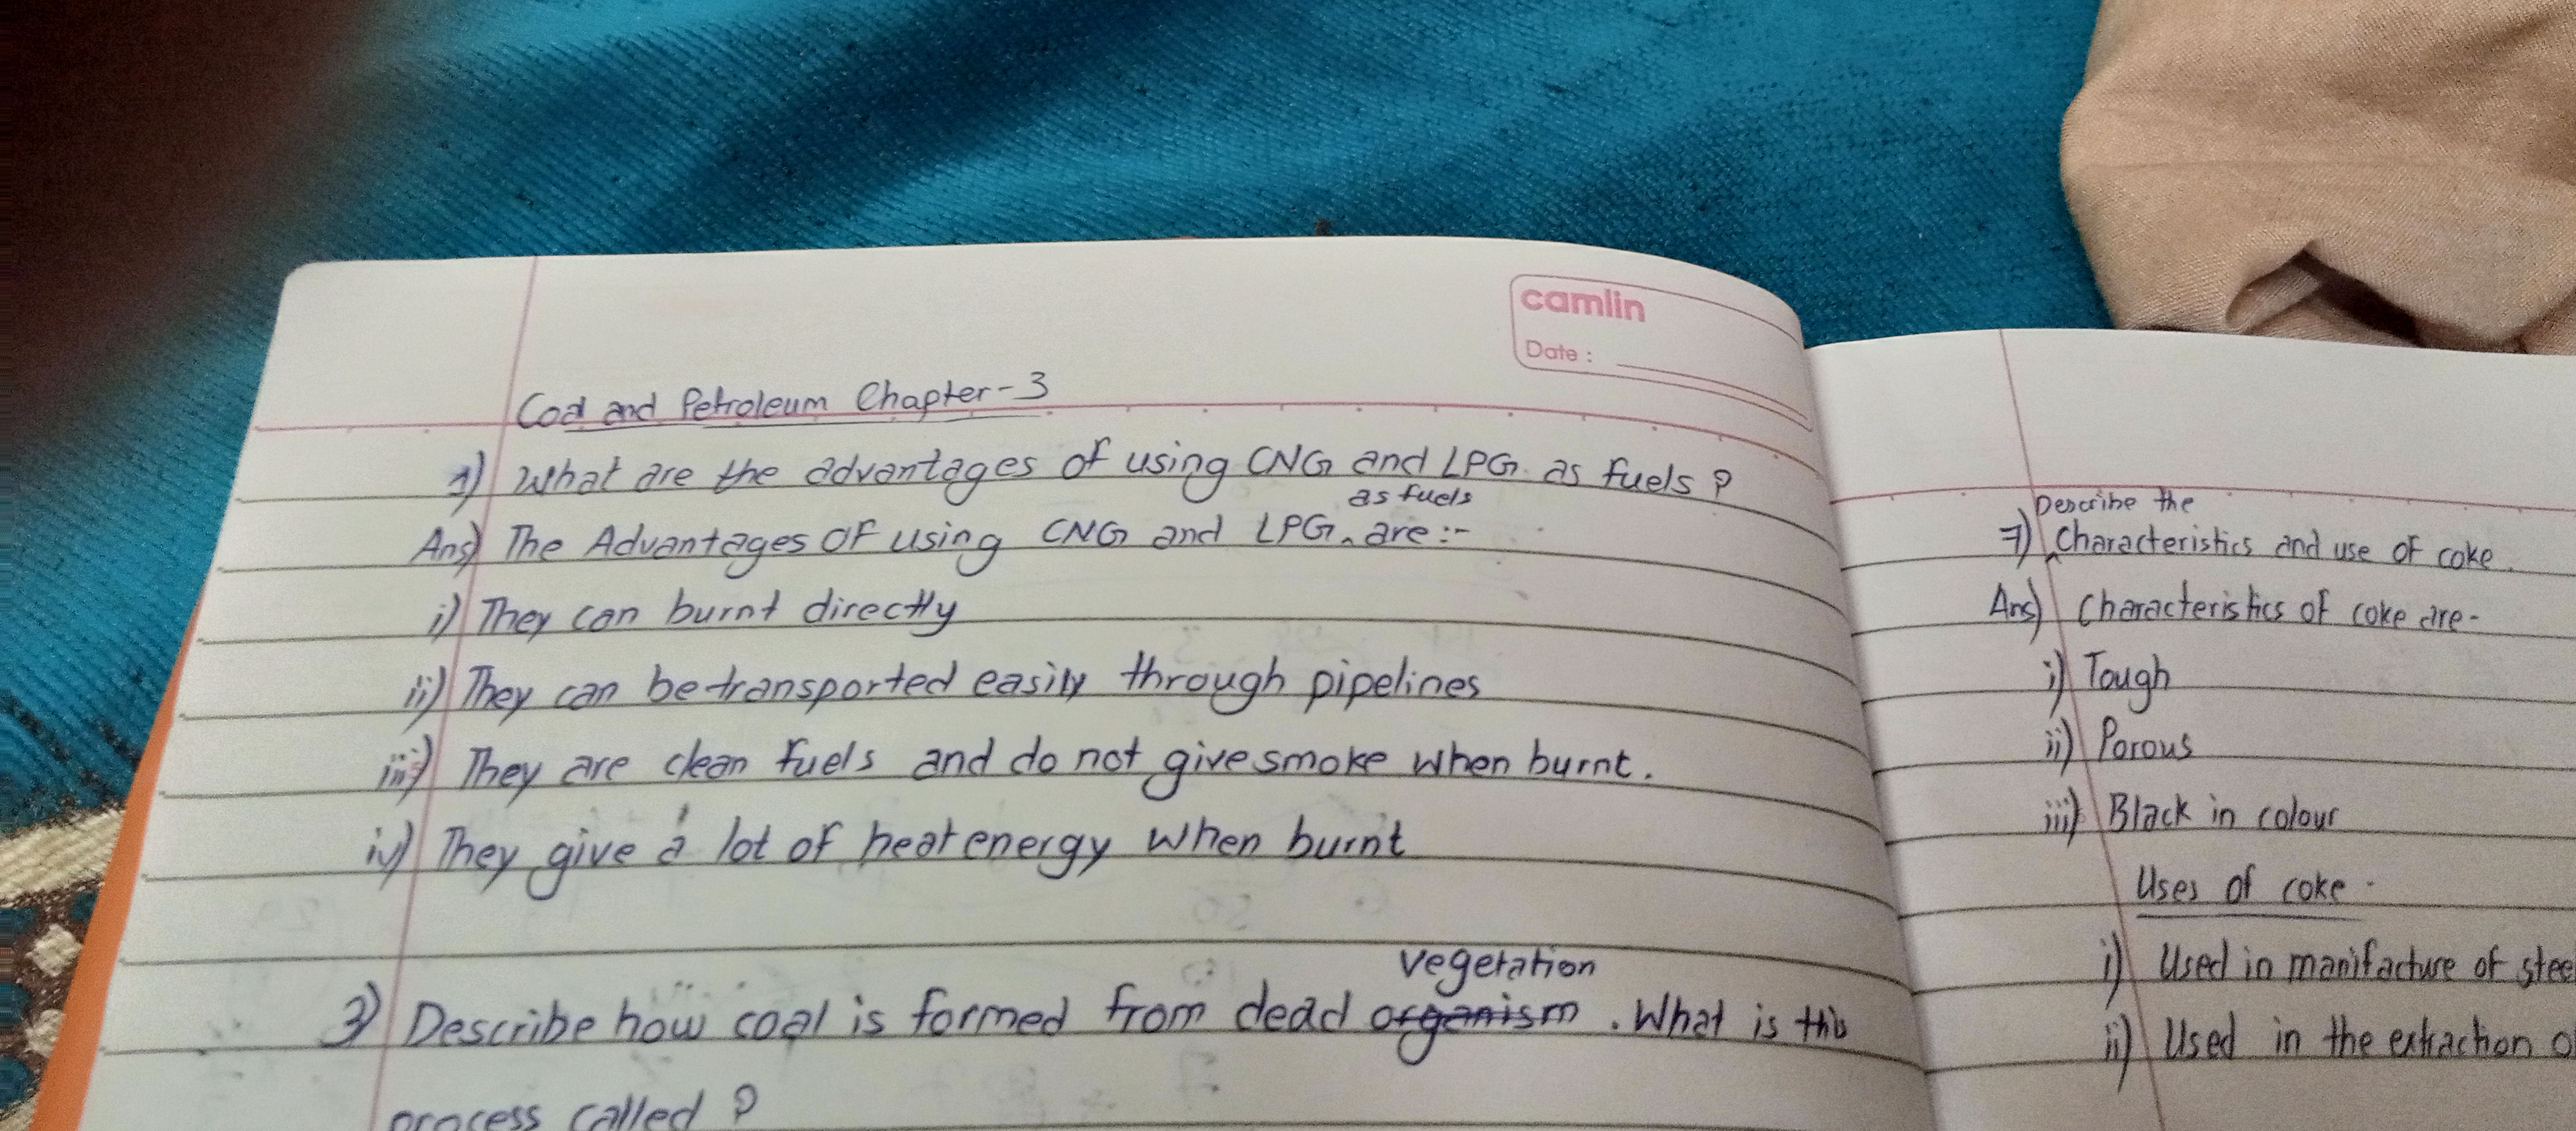 camlin
Date :
Coal and Petroleum Chapter-3
1) What are the advantages of using CNG and LPG as fuels ?
as fuels
Ans) The Advantages OF using CNG and LPG are :-
i) They can burnt directly
ii) They can be transported easily through pipelines
iii) They are clean fuels and do not give smoke when burnt.
iv) They give a lot of heat energy when burnt
vegetation
3) Describe how coal is formed from dead organism . What is this
process called ?
Describe the
7) Characteristics and use of coke.
Ans) Characteristics of coke are-
i) Tough
ii) Porous
iii) Black in colour
Uses of coke -
i) Used in manifacture of stee
ii) Used in the extraction o